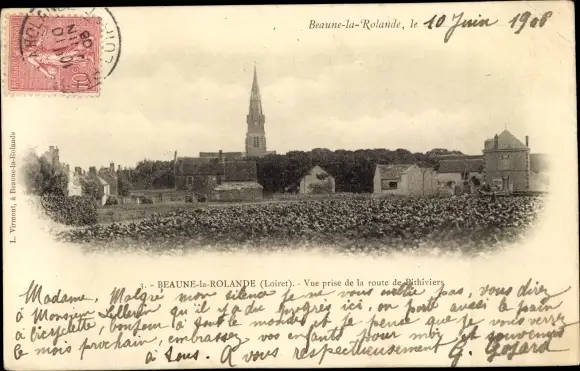 Beaune-la-Rolande, le 10 Juin 1908
L. Virmont, à Beaune-la-Rolande
3. - BEAUNE-la-ROLANDE (Loiret). - Vue prise de la route de Pithiviers
Madame, Malgré mon silence je ne vous oublie pas, vous direz
à Monsieur qu'il y a du progrès ici, on porte aussi le pain
à bicyclette, bonjour à tout le monde et je pense que je vous verrez
le mois prochain, embrassez vos enfants pour moi et souvenirs
à tous. A vous respectueusement